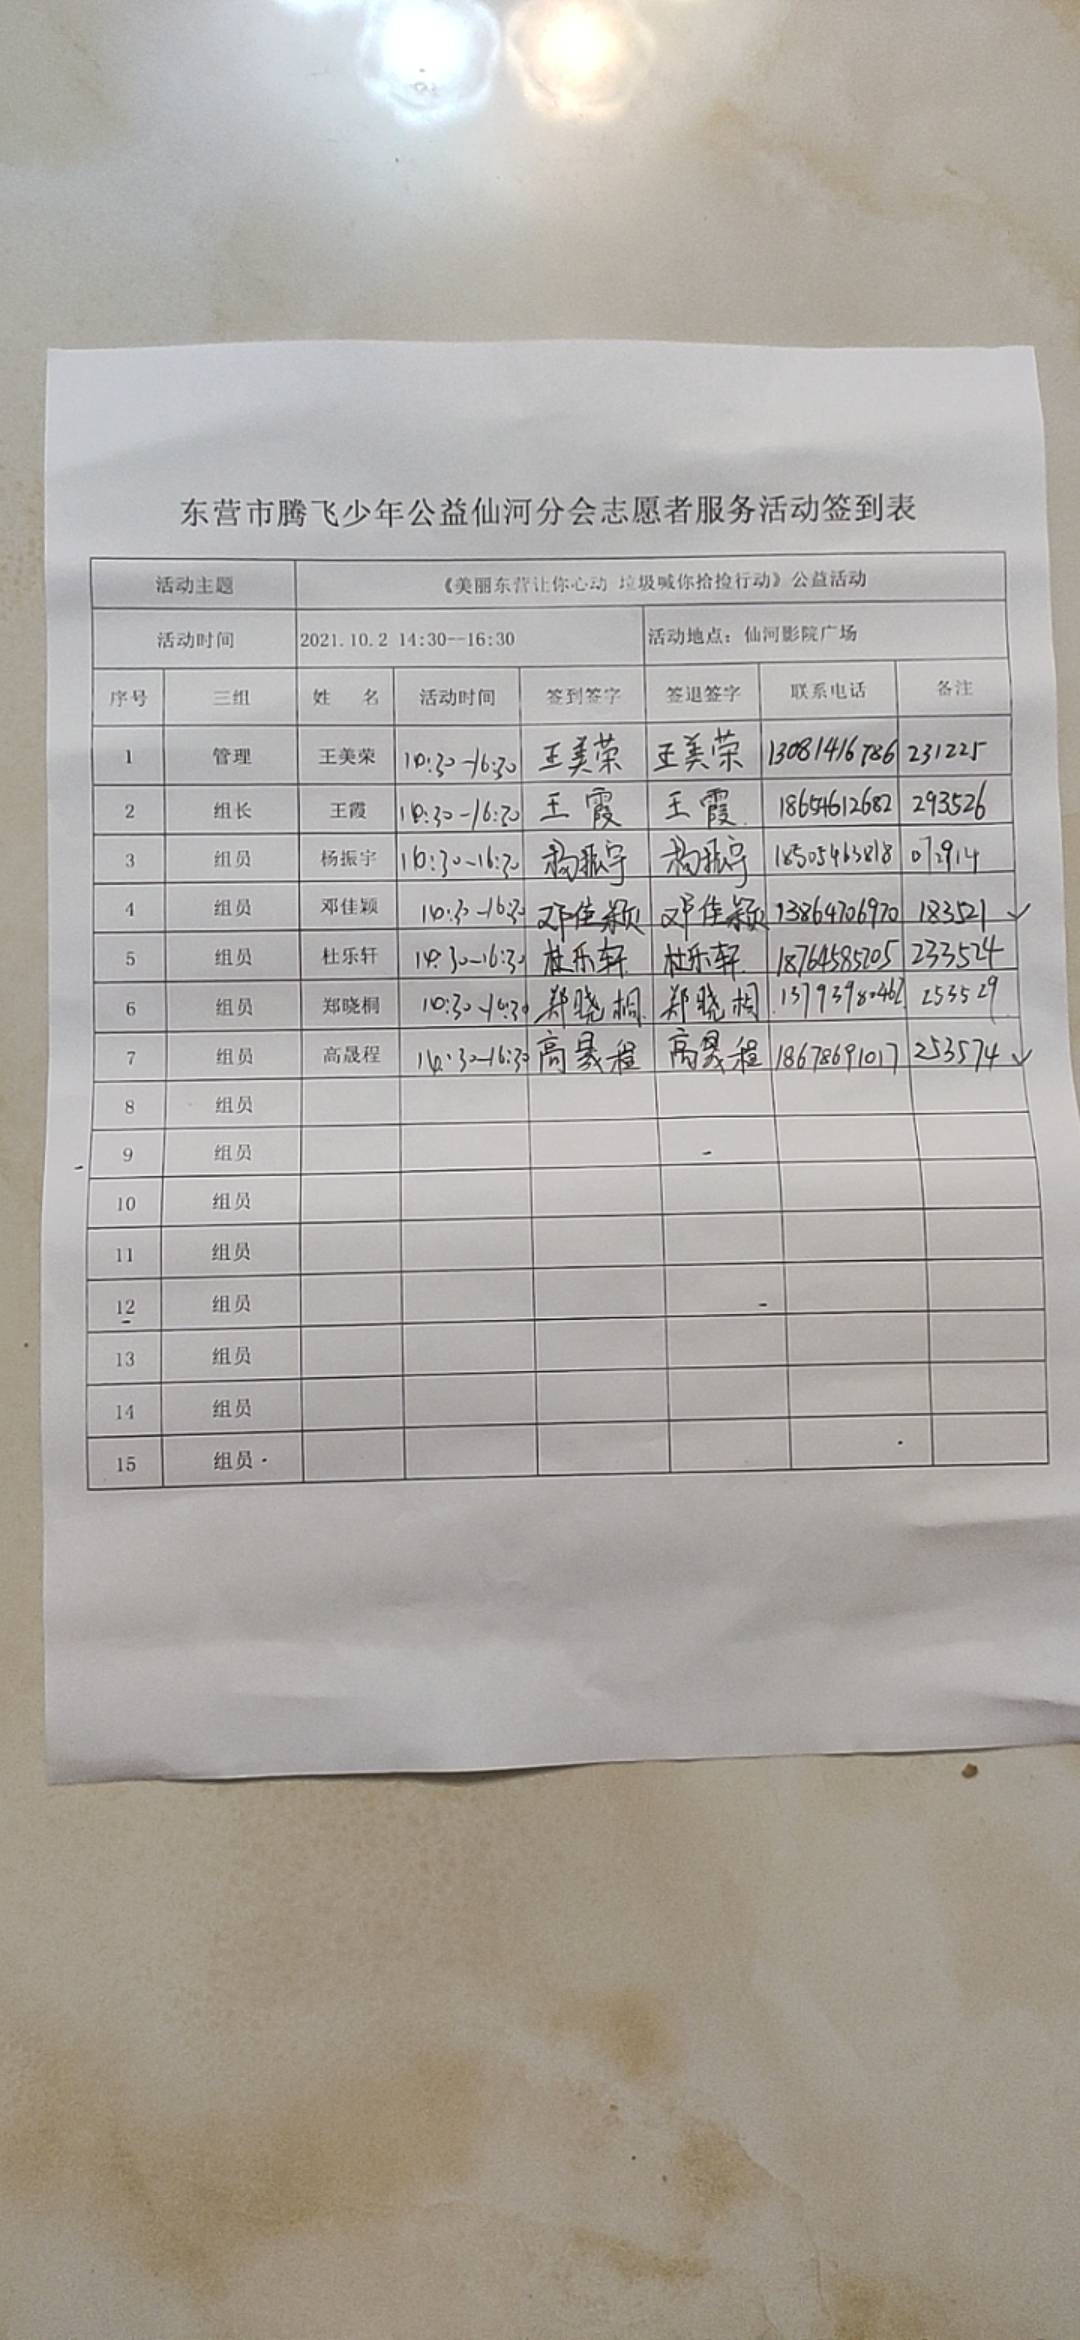 东营市腾飞少年公益仙河分会志愿者服务活动签到表
活动主题 《美丽东营让你心动 垃圾喊你拾捡行动》公益活动
活动时间 2021.10.2 14:30--16:30 活动地点：仙河影院广场
序号 三组 姓 名 活动时间 签到签字 签退签字 联系电话 备注
1 管理 王美荣 14:30-16:30 王美荣 王美荣 13081416786 231225
2 组长 王霞 14:30-16:30 王霞 王霞 18654612682 293526
3 组员 杨振宇 14:30-16:30 杨振宇 杨振宇 18505463818 072914
4 组员 邓佳颖 14:30-16:30 邓佳颖 邓佳颖 13864706970 183521 ✓
5 组员 杜乐轩 14:30-16:30 杜乐轩 杜乐轩 18764585205 233524
6 组员 郑晓桐 14:30-16:30 郑晓桐 郑晓桐 253529
7 组员 高晟程 14:30-16:30 高晟程 高晟程 18678691017 253574 ✓
8 组员
9 组员
10 组员
11 组员
12 组员
13 组员
14 组员
15 组员